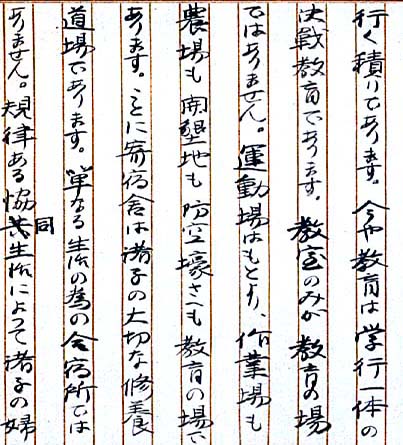 行く積りであります。今や教育は学行一体の
決戦教育であります。教室のみが教育の場
ではありません。運動場はもとより、作業場も
農場も開墾地も防空壕さへも教育の場で
あります。ことに寄宿舎は諸子の大切な修養
道場であります。単なる生活の為の合宿所では
ありません。規律ある協同生活によって諸子の婦